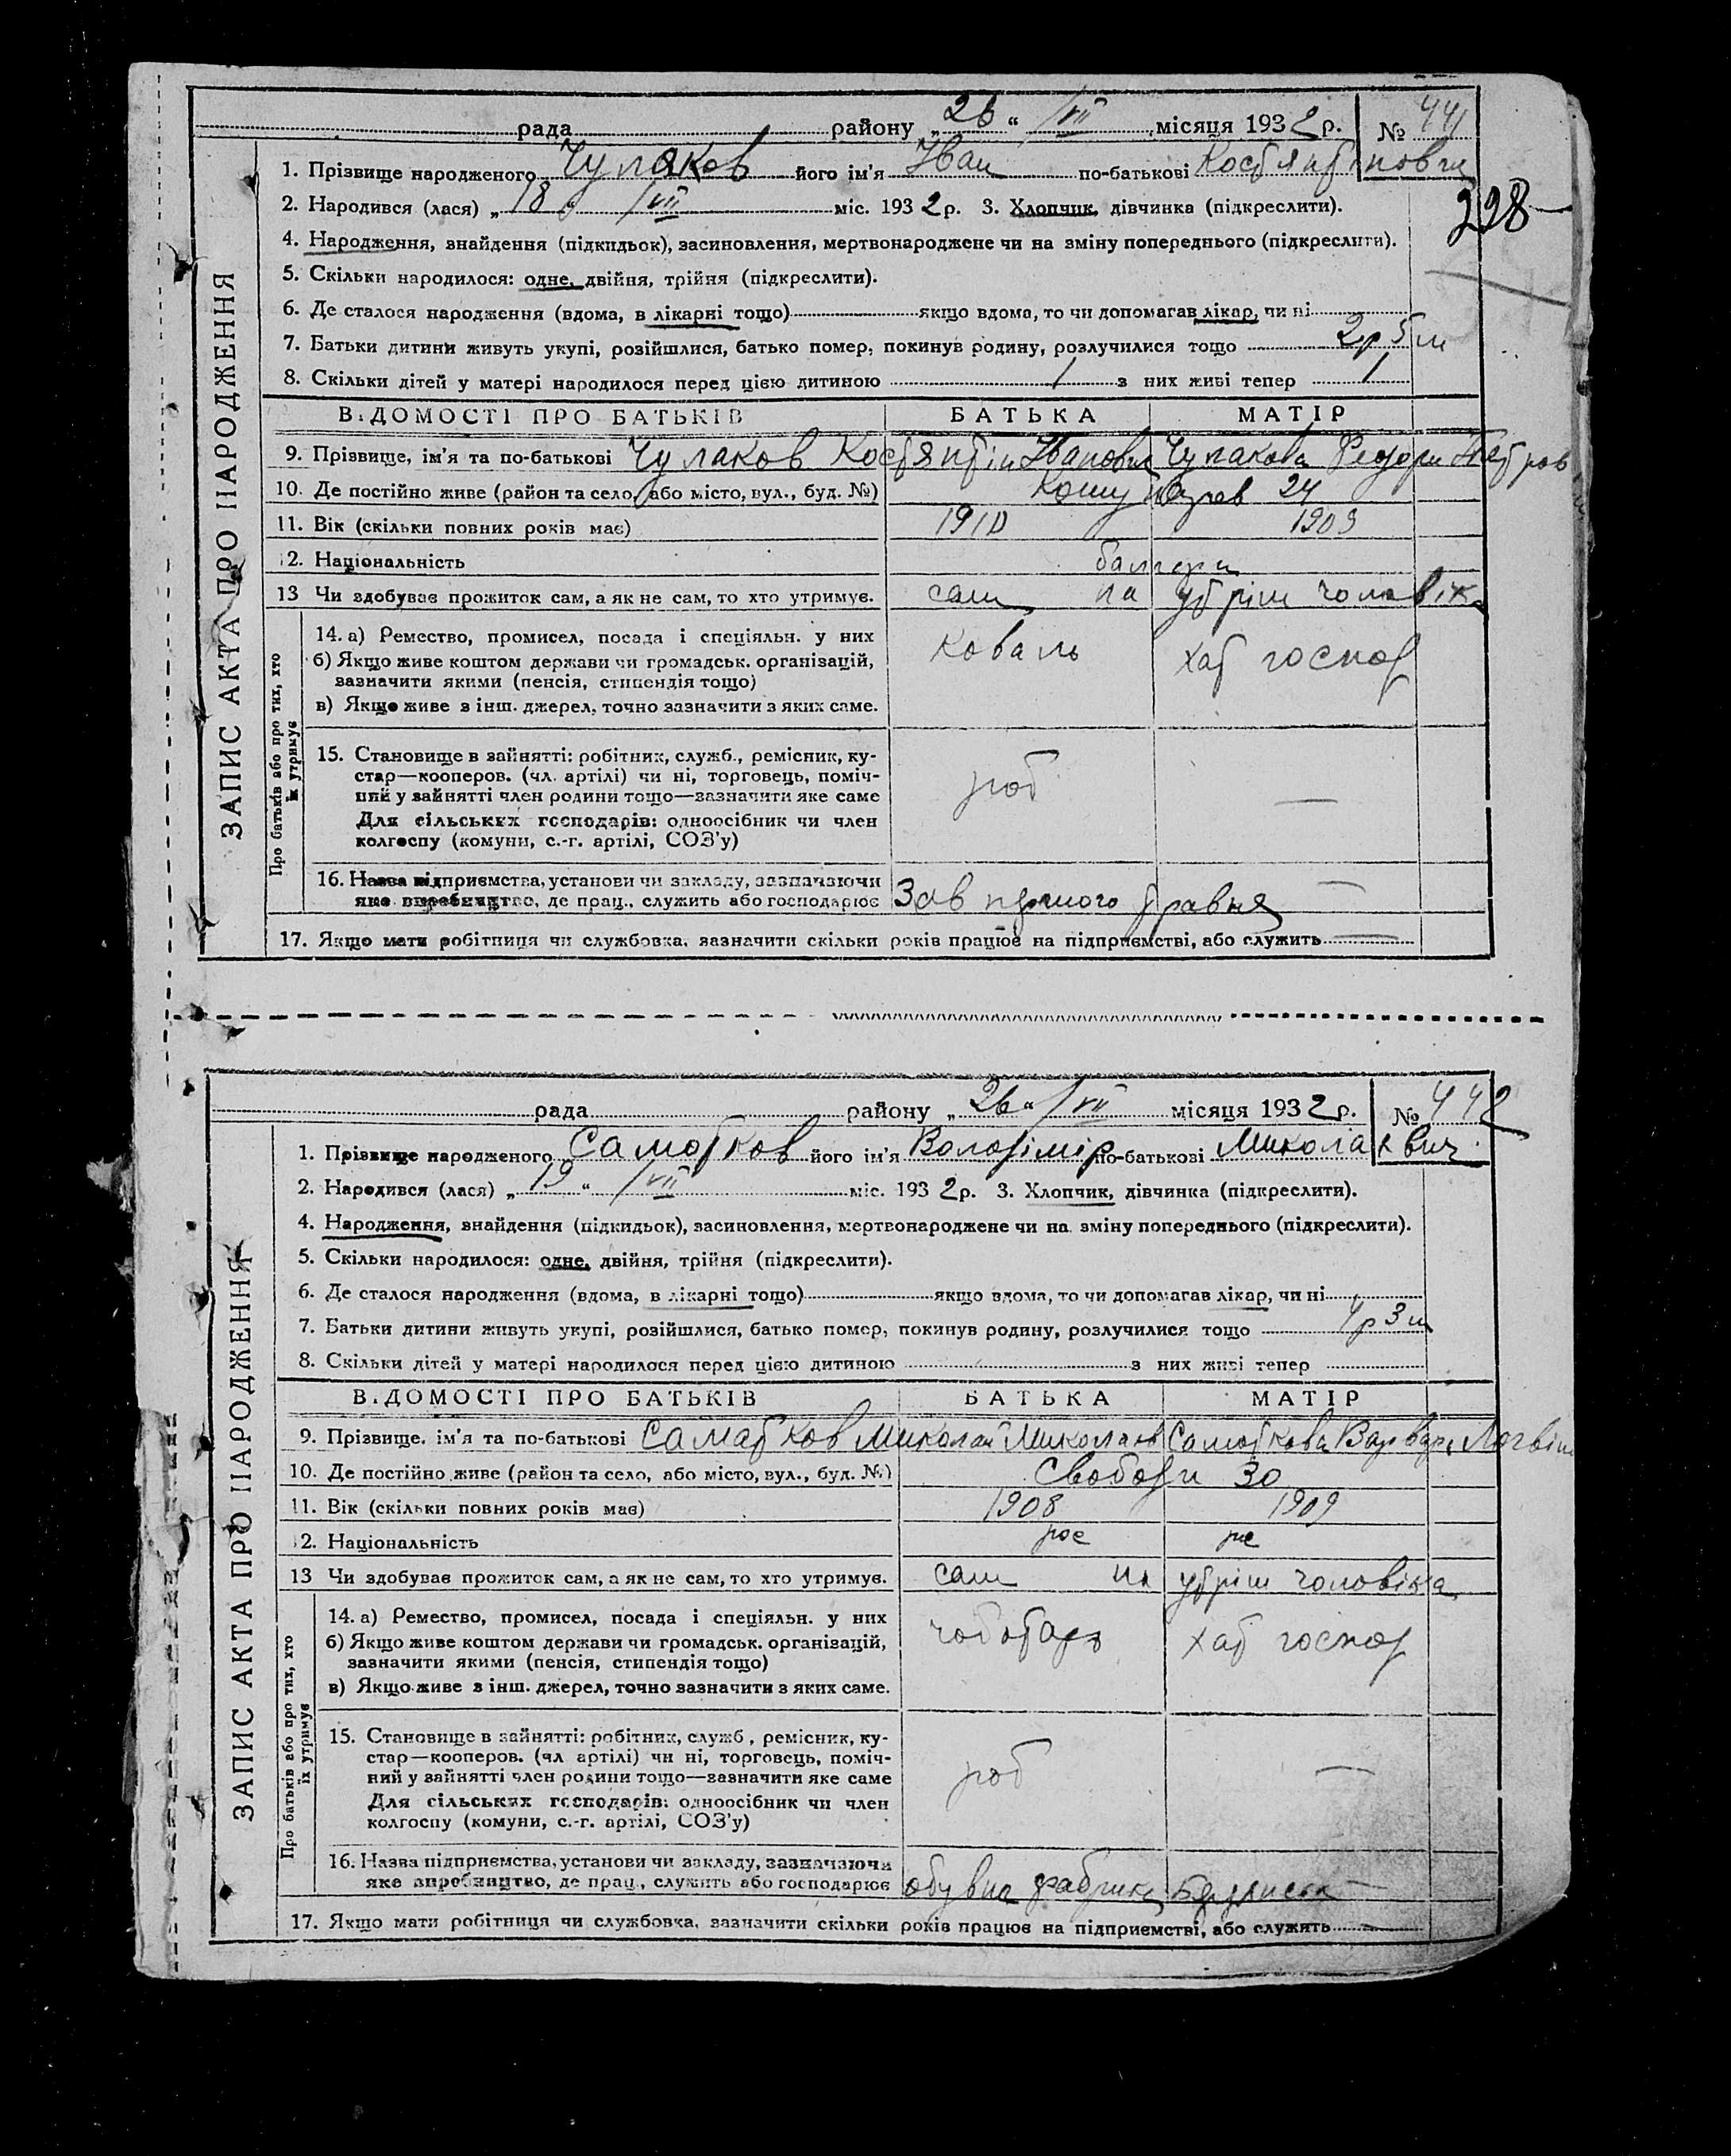 рада районну „26“ /VII місяця 1932 р. № 441
1. Прізвище народженого Чулаков його ім'я Іван по-батькові Костянтінович
228
2. Народився (лася) „18“ /VII міс. 1932 р. 3. Хлопчик, дівчинка (підкреслити).
4. Народження, знайдення (підкидьок), засиновлення, мертвонароджене чи на зміну попереднього (підкреслити).
5. Скільки народилося: одне, двійня, трійня (підкреслити).
6. Де сталося народження (вдома, в лікарні тощо) якщо вдома, то чи допомагав лікар, чи ні
7. Батьки дитини живуть укупі, розійшлися, батько помер, покинув родину, розлучилися тощо 2р 5м
8. Скільки дітей у матері народилося перед цією дитиною 1 з них живі тепер 1
ЗАПИС АКТА ПРО НАРОДЖЕННЯ
ВІДОМОСТІ ПРО БАТЬКІВ БАТЬКА МАТІР
9. Прізвище, ім'я та по-батькові Чулаков Костянтін Іванович Чулакова Федора Петров
10. Де постійно живе (район та село, або місто, вул., буд. №) 24
11. Вік (скільки повних років має) 1910 1909
12. Національність болгари
13 Чи здобуває прожиток сам, а як не сам, то хто утримує. сам на утрім чоловіка
Про батьків або про тих, хто їх утримує
14. а) Ремество, промисел, посада і спеціяльн. у них
б) Якщо живе коштом держави чи громадськ. організацій,
зазначити якими (пенсія, стипендія тощо)
в) Якщо живе з інш. джерел, точно зазначити з яких саме.
коваль хат господ
15. Становище в зайнятті: робітник, служб., ремісник, ку-
стар—кооперов. (чл. артілі) чи ні, торговець, поміч-
ний у зайнятті член родини тощо—зазначити яке саме
Для сільських господарів: одноосібник чи член
колгоспу (комуни, с.-г. артілі, СОЗ'у)
роб —
16. Назва підприємства, установи чи закладу, зазначаючи
яке виробництво, де прац., служить або господарює Зав першого травня —
17. Якщо мати робітниця чи службовка, зазначити скільки років працює на підприємстві, або служить —
рада району „26“ /VII місяця 1932 р. № 442
1. Прізвище народженого Самотков його ім'я Володімір по-батькові Миколаєвич
2. Народився (лася) „19“ /VII міс. 1932 р. 3. Хлопчик, дівчинка (підкреслити).
4. Народження, знайдення (підкидьок), засиновлення, мертвонароджене чи на зміну попереднього (підкреслити).
5. Скільки народилося: одне, двійня, трійня (підкреслити).
6. Де сталося народження (вдома, в лікарні тощо) якщо вдома, то чи допомагав лікар, чи ні
7. Батьки дитини живуть укупі, розійшлися, батько помер, покинув родину, розлучилися тощо 4р 3м
8. Скільки дітей у матері народилося перед цією дитиною з них живі тепер
ЗАПИС АКТА ПРО НАРОДЖЕННЯ
ВІДОМОСТІ ПРО БАТЬКІВ БАТЬКА МАТІР
9. Прізвище, ім'я та по-батькові Саматков Миколай Миколаєв Самоткова Варвара Логвін
10. Де постійно живе (район та село, або місто, вул., буд. №) Свободи 30
11. Вік (скільки повних років має) 1908 1909
12. Національність рос рос
13 Чи здобуває прожиток сам, а як не сам, то хто утримує. сам на утрім чоловіка
Про батьків або про тих, хто їх утримує
14. а) Ремество, промисел, посада і спеціяльн. у них
б) Якщо живе коштом держави чи громадськ. організацій,
зазначити якими (пенсія, стипендія тощо)
в) Якщо живе з інш. джерел, точно зазначити з яких саме.
чоботарь хат господ
15. Становище в зайнятті: робітник, служб., ремісник, ку-
стар—кооперов. (чл артілі) чи ні, торговець, поміч-
ний у зайнятті член родини тощо—зазначити яке саме
Для сільських господарів: одноосібник чи член
колгоспу (комуни, с.-г. артілі, СОЗ'у)
роб —
16. Назва підприємства, установи чи закладу, зазначаючи
яке виробництво, де прац., служить або господарює обувна фабрика Бердянськ —
17. Якщо мати робітниця чи службовка, зазначити скільки років працює на підприємстві, або служить —